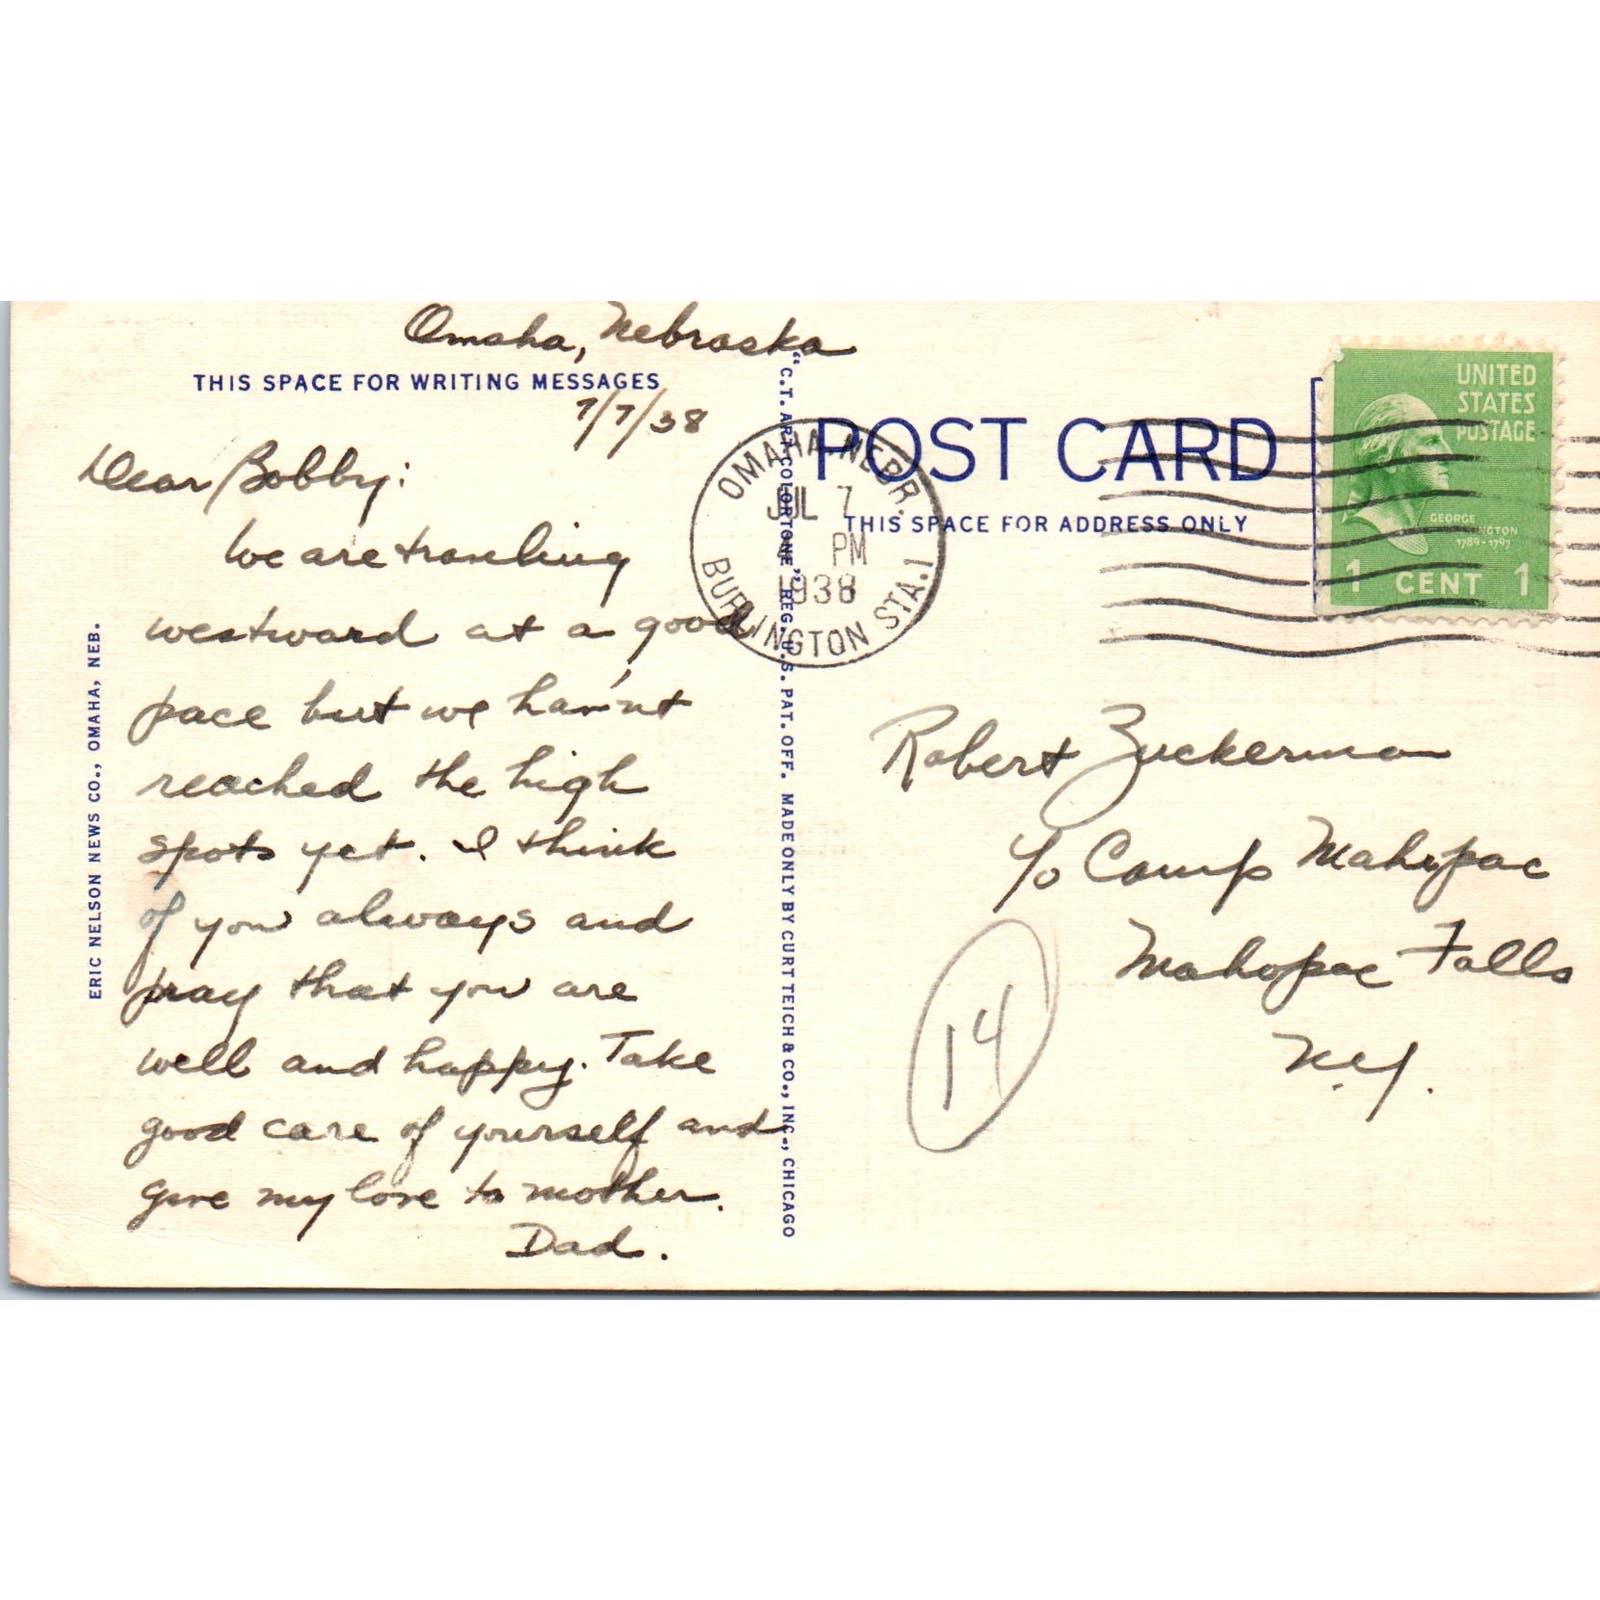 Omaha, Nebraska
THIS SPACE FOR WRITING MESSAGES
7/7/38
Dear Bobby:
We are traveling
westward at a good
pace but we hav'nt
reached the high
spots yet. I think
of you always and
pray that you are
well and happy. Take
good care of yourself and
give my love to mother.
Dad.
ERIC NELSON NEWS CO., OMAHA, NEB.
"C.T. ART-COLORTONE" REG. U.S. PAT. OFF. MADE ONLY BY CURT TEICH & CO., INC., CHICAGO
POST CARD
THIS SPACE FOR ADDRESS ONLY
OMAHA, NEBR.
JUL 7
PM
1938
BURLINGTON STA. 1
UNITED
STATES
POSTAGE
GEORGE
WASHINGTON
1789-1797
1 CENT 1
Robert Zuckerman
c/o Camp Mahopac
Mahopac Falls
N.Y.
14